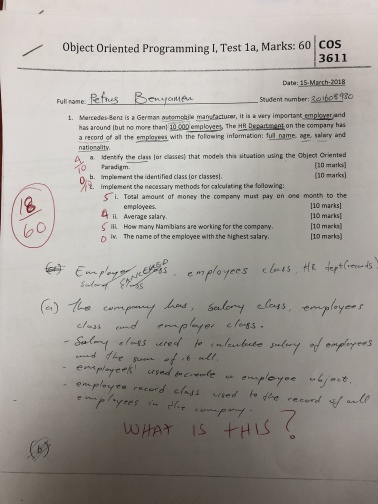 Object Oriented Programming I, Test 1a, Marks: 60
COS 3611
Date: 15-March-2018
Full name: Petrus Benyamen Student number: 201608930
1. Mercedes-Benz is a German automobile manufacturer, it is a very important employer and
has around (but no more than) 10 000 employees. The HR Department on the company has
a record of all the employees with the following information: full name, age, salary and
nationality.
a. Identify the class (or classes) that models this situation using the Object Oriented
Paradigm. [10 marks]
b. Implement the identified class (or classes). [10 marks]
c. Implement the necessary methods for calculating the following:
i. Total amount of money the company must pay on one month to the
employees. [10 marks]
ii. Average salary. [10 marks]
iii. How many Namibians are working for the company. [10 marks]
iv. The name of the employee with the highest salary. [10 marks]
4
10
0
5
4
5
0
18
60
Employer class, employees class, HR dept (records)
salary class
CANCELLED
(a) The company has, salary class, employees
class and employer class.
- Salary class used to calculate salary of employees
and the sum of it all.
- employees used to create a employee object.
- employee record class used to the record of all
employees in the company.
WHAT IS THIS?
(b)